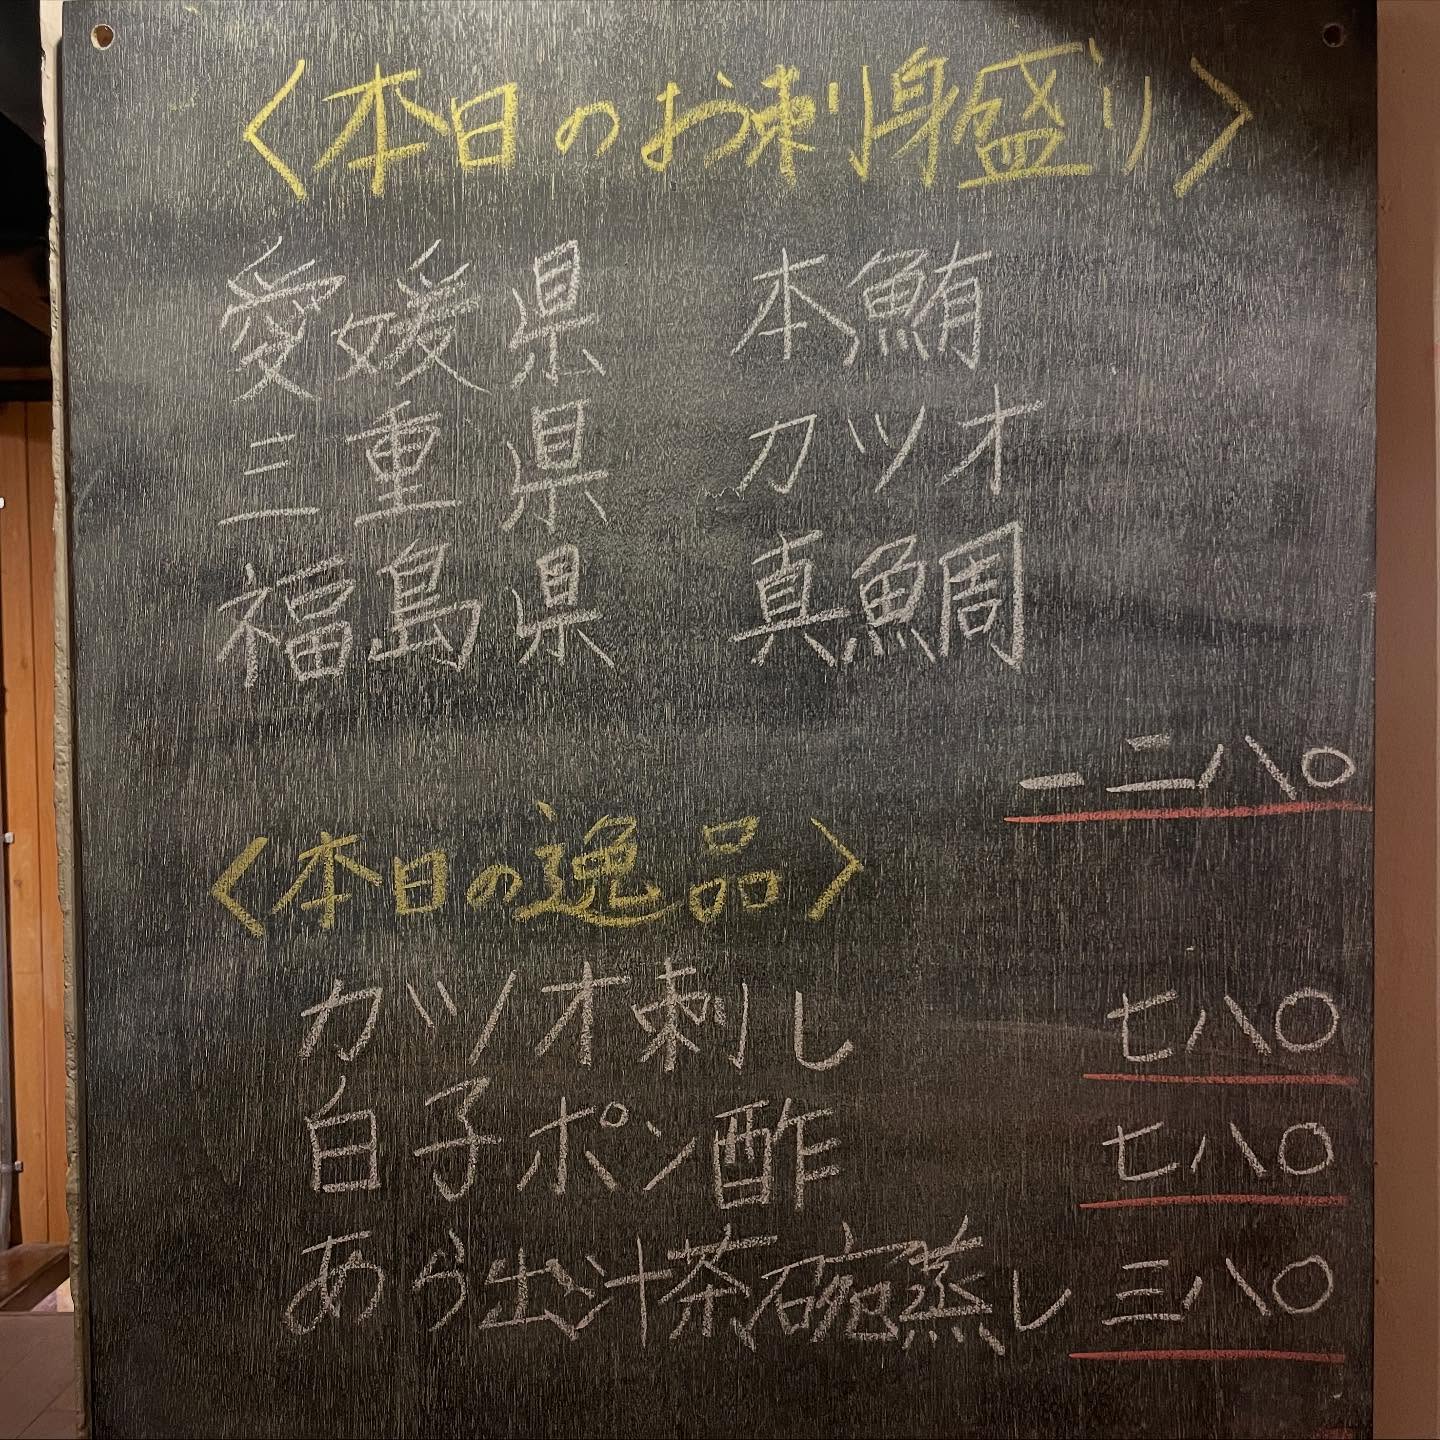 〈本日のお刺身盛り〉
愛媛県 本鮪
三重県 カツオ
福島県 真鯛
一二八〇
〈本日の逸品〉
カツオ刺し 七八〇
白子ポン酢 七八〇
あら出汁茶碗蒸し 三八〇